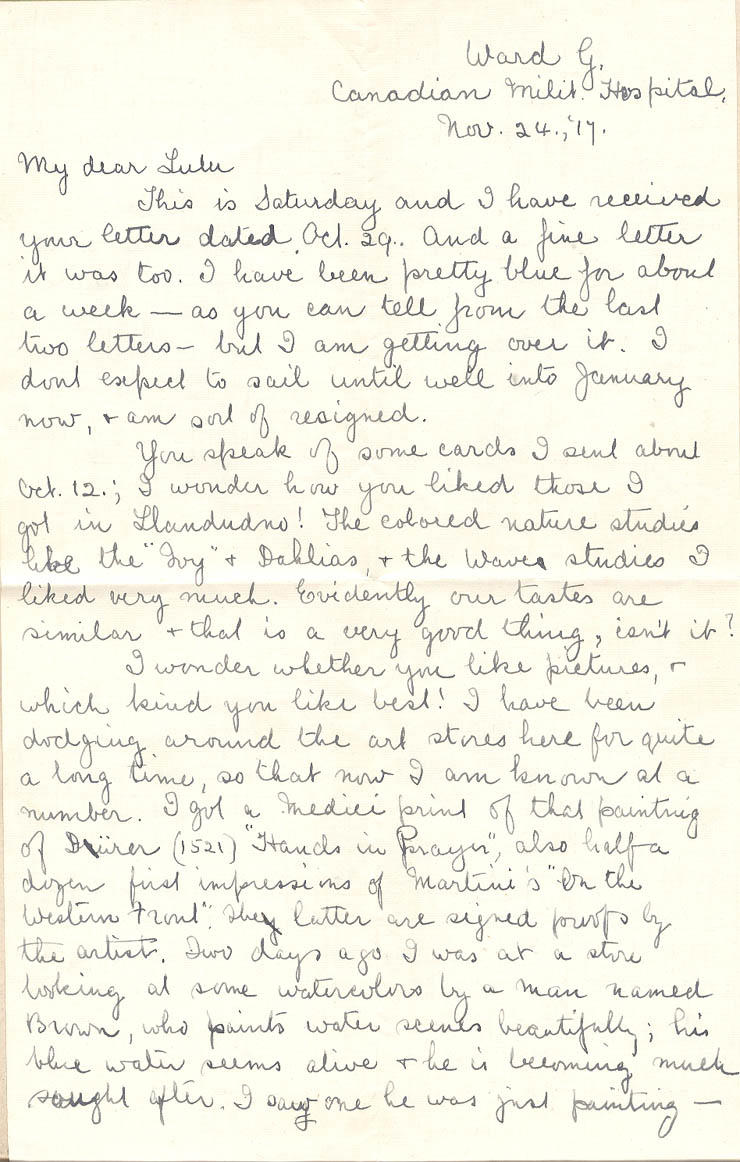 Ward G.
Canadian Milit. Hospital,
Nov. 24., '17.
My dear Lulu
This is Saturday and I have received
your letter dated Oct. 29.. And a fine letter
it was too. I have been pretty blue for about
a week — as you can tell from the last
two letters — but I am getting over it. I
dont expect to sail until well into January
now, + am sort of resigned.
You speak of some cards I sent about
Oct. 12.; I wonder how you liked those I
got in Llandudno! The colored nature studies
like the "Ivy" + Dahlias, + the Waves studies I
liked very much. Evidently our tastes are
similar + that is a very good thing, isn't it?
I wonder whether you like pictures, +
which kind you like best! I have been
dodging around the art stores here for quite
a long time, so that now I am known at a
number. I got a Medici print of that painting
of Dürer (1521) "Hands in Prayer", also half a
dozen first impressions of Martini's "On the
Western Front". They latter are signed proofs by
the artist. Two days ago I was at a store
looking at some watercolors by a man named
Brown, who paints water scenes beautifully; his
blue water seems alive + he is becoming much
sought after. I saw one he was just painting —